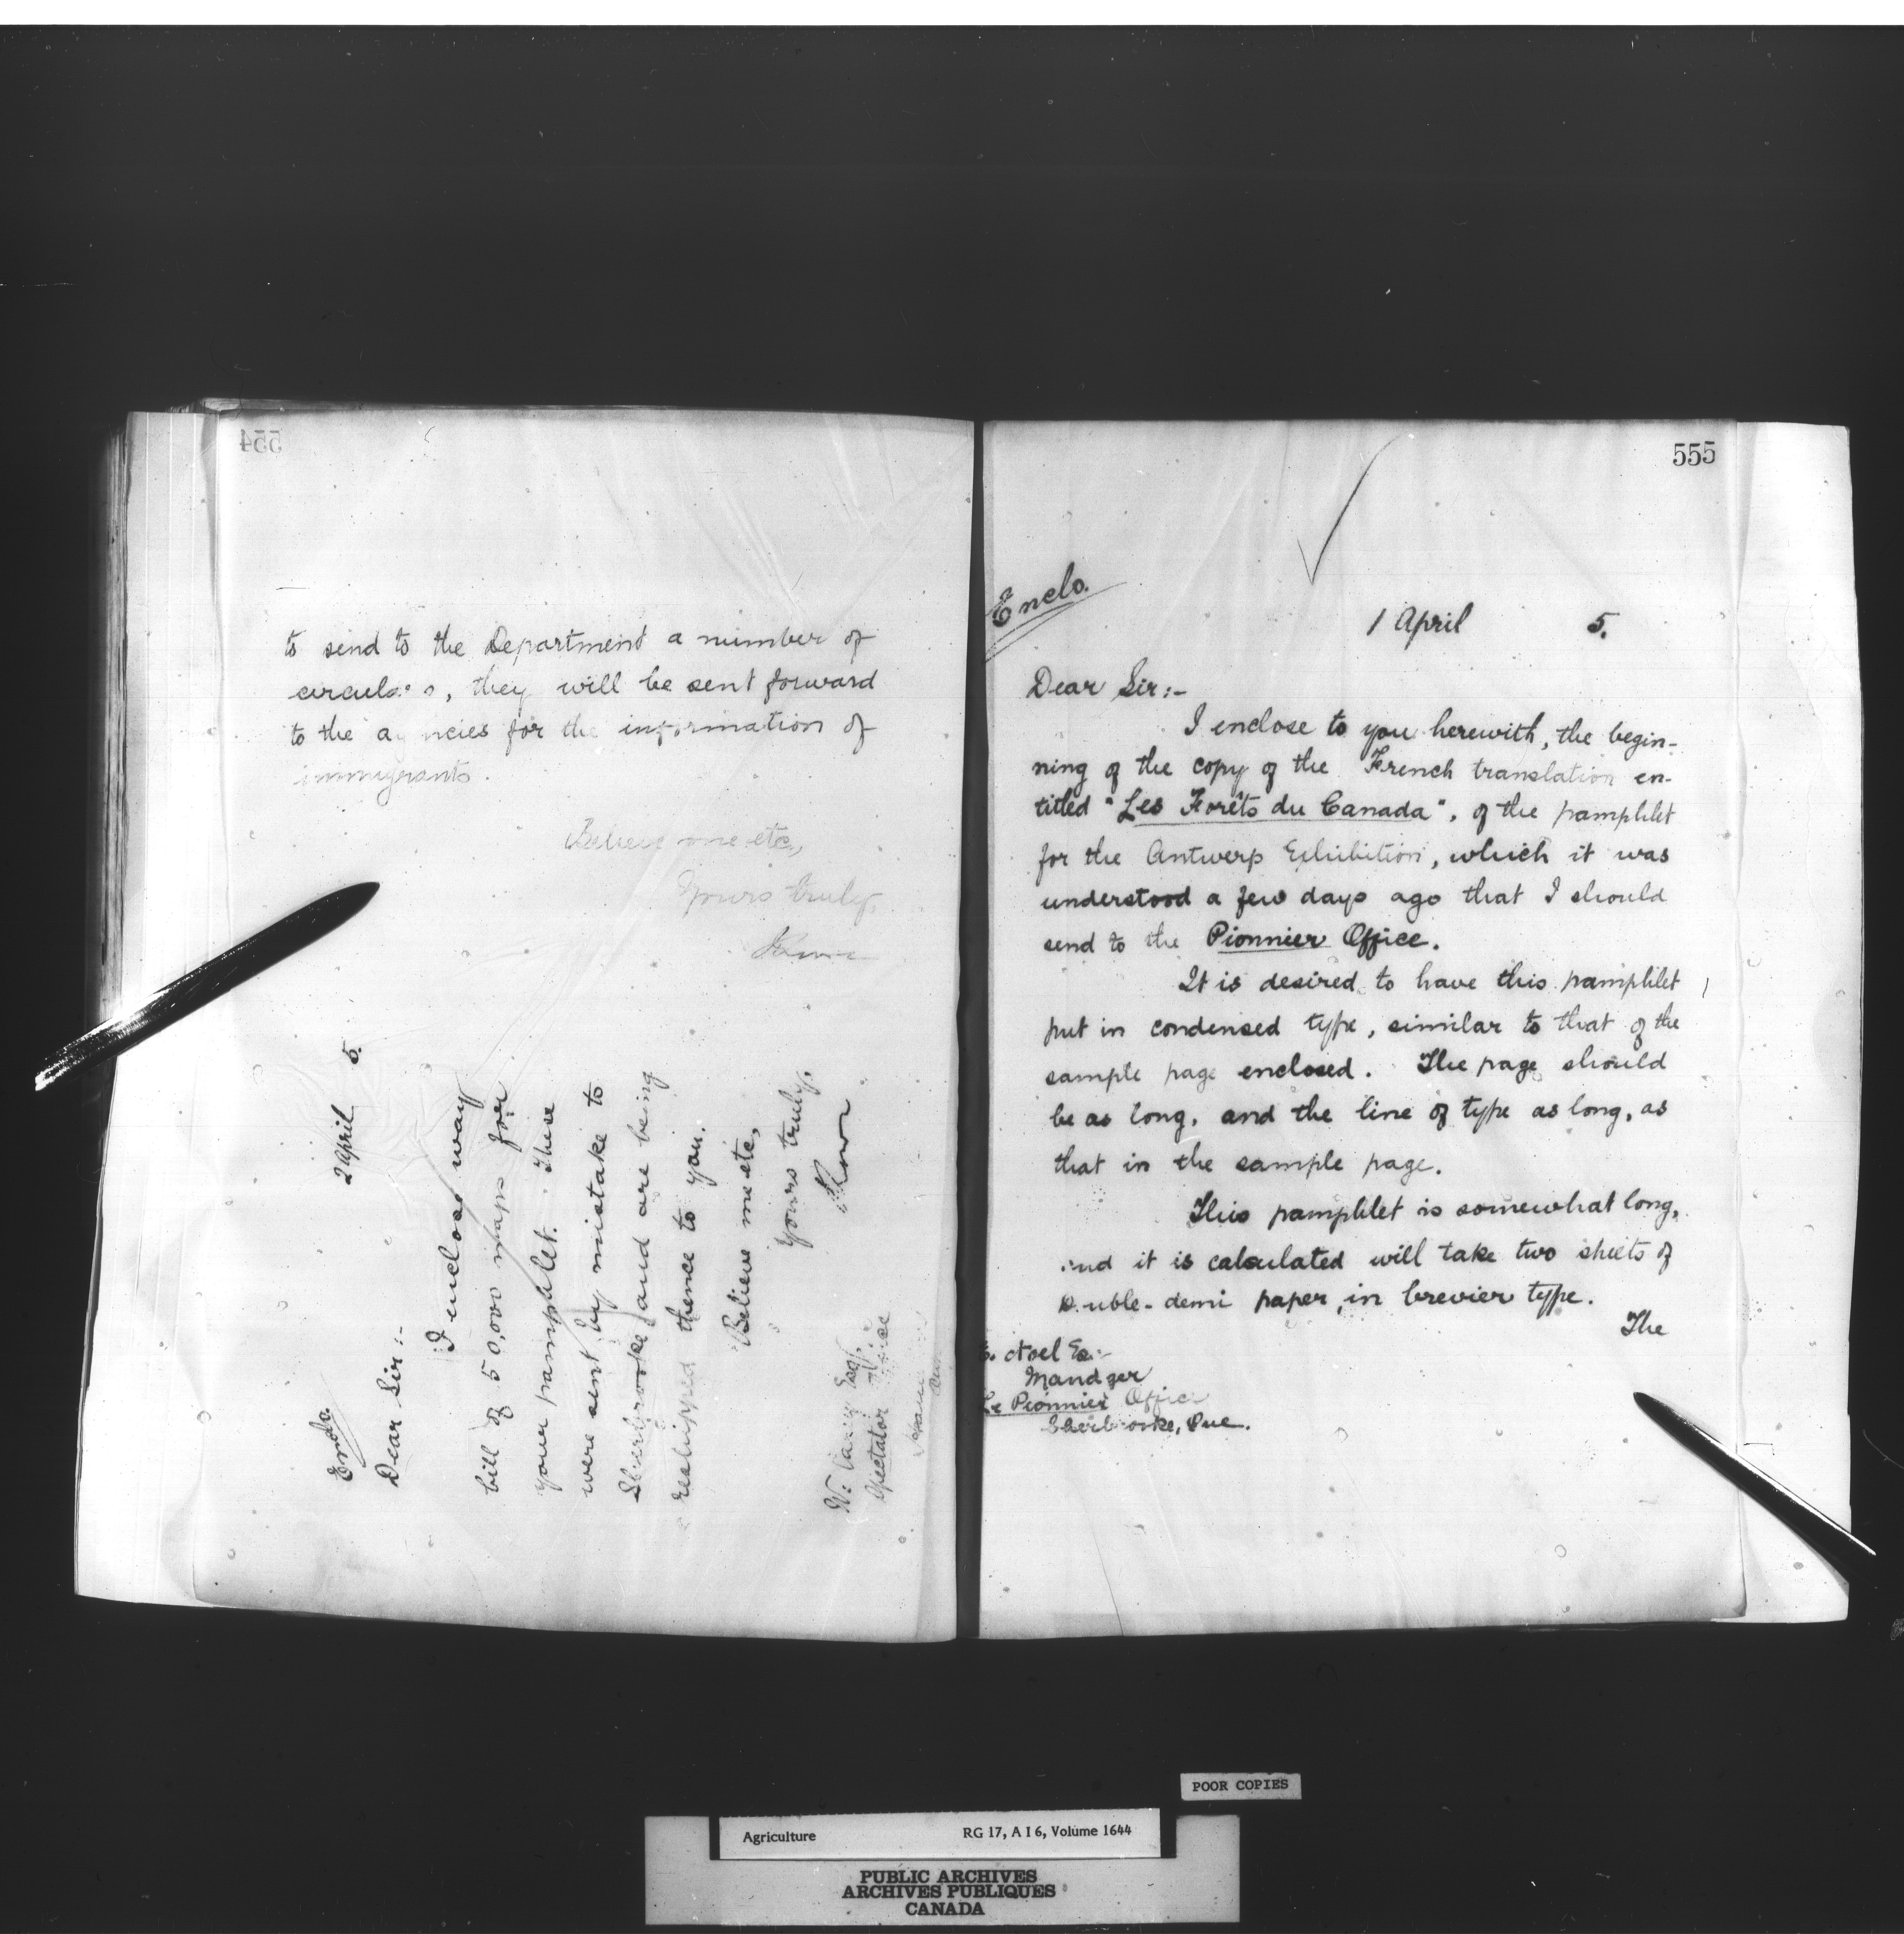 554
to send to the Department a number of
circulars, they will be sent forward
to the agencies for the information of
immigrants.
Believe me etc,
Yours truly,
2 April 5.
Enclo.
Dear Sir:-
I enclose way
bill of 50,000 maps for
your pamphlet. These
were sent by mistake to
Sherbrooke and are being
reshipped thence to you.
Believe me etc,
yours truly,
W. Esqr.
Spectator Office
555
Enclo.
1 April 5.
Dear Sir:-
I enclose to you herewith, the begin-
ning of the copy of the French translation en-
titled "Les Forêts du Canada", of the pamphlet
for the Antwerp Exhibition, which it was
understood a few days ago that I should
send to the Pionnier Office.
It is desired to have this pamphlet
put in condensed type, similar to that of the
sample page enclosed. The page should
be as long, and the line of type as long, as
that in the sample page.
This pamphlet is somewhat long,
and it is calculated will take two sheets of
Double-demi paper, in brevier type.
The
E. Noel Es:-
Manager
Le Pionnier Office
Sherbrooke, Que.
POOR COPIES
Agriculture RG 17, A I 6, Volume 1644
PUBLIC ARCHIVES
ARCHIVES PUBLIQUES
CANADA